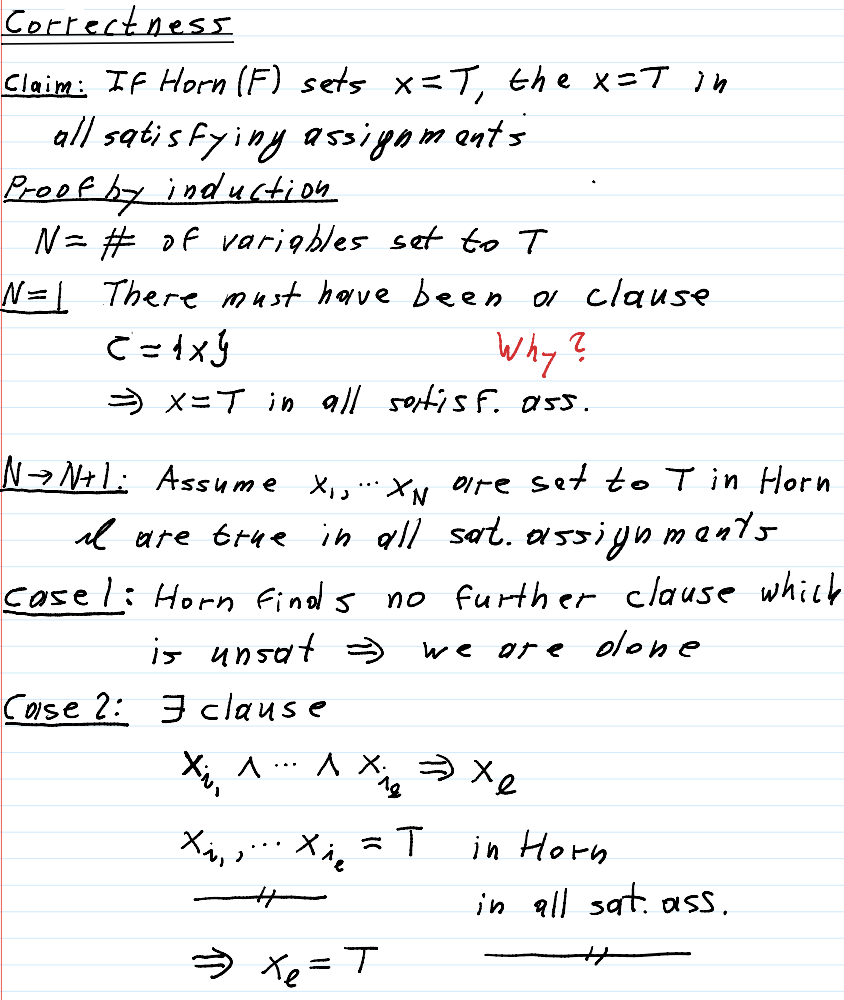 Correctness
Claim: If Horn (F) sets x=T, the x=T in
all satisfying assignments
Proof by induction
N= # of variables set to T
N=1 There must have been a clause
C = {x} Why?
⇒ x=T in all satisf. ass.
N→N+1: Assume x₁, ... x_N are set to T in Horn
& are true in all sat. assignments
Case 1: Horn finds no further clause which
is unsat ⇒ we are done
Case 2: ∃ clause
x_{i₁} ∧ ... ∧ x_{i_e} ⇒ x_e
x_{i₁}, ... x_{i_e} = T in Horn
—//— in all sat. ass.
⇒ x_e = T —//—